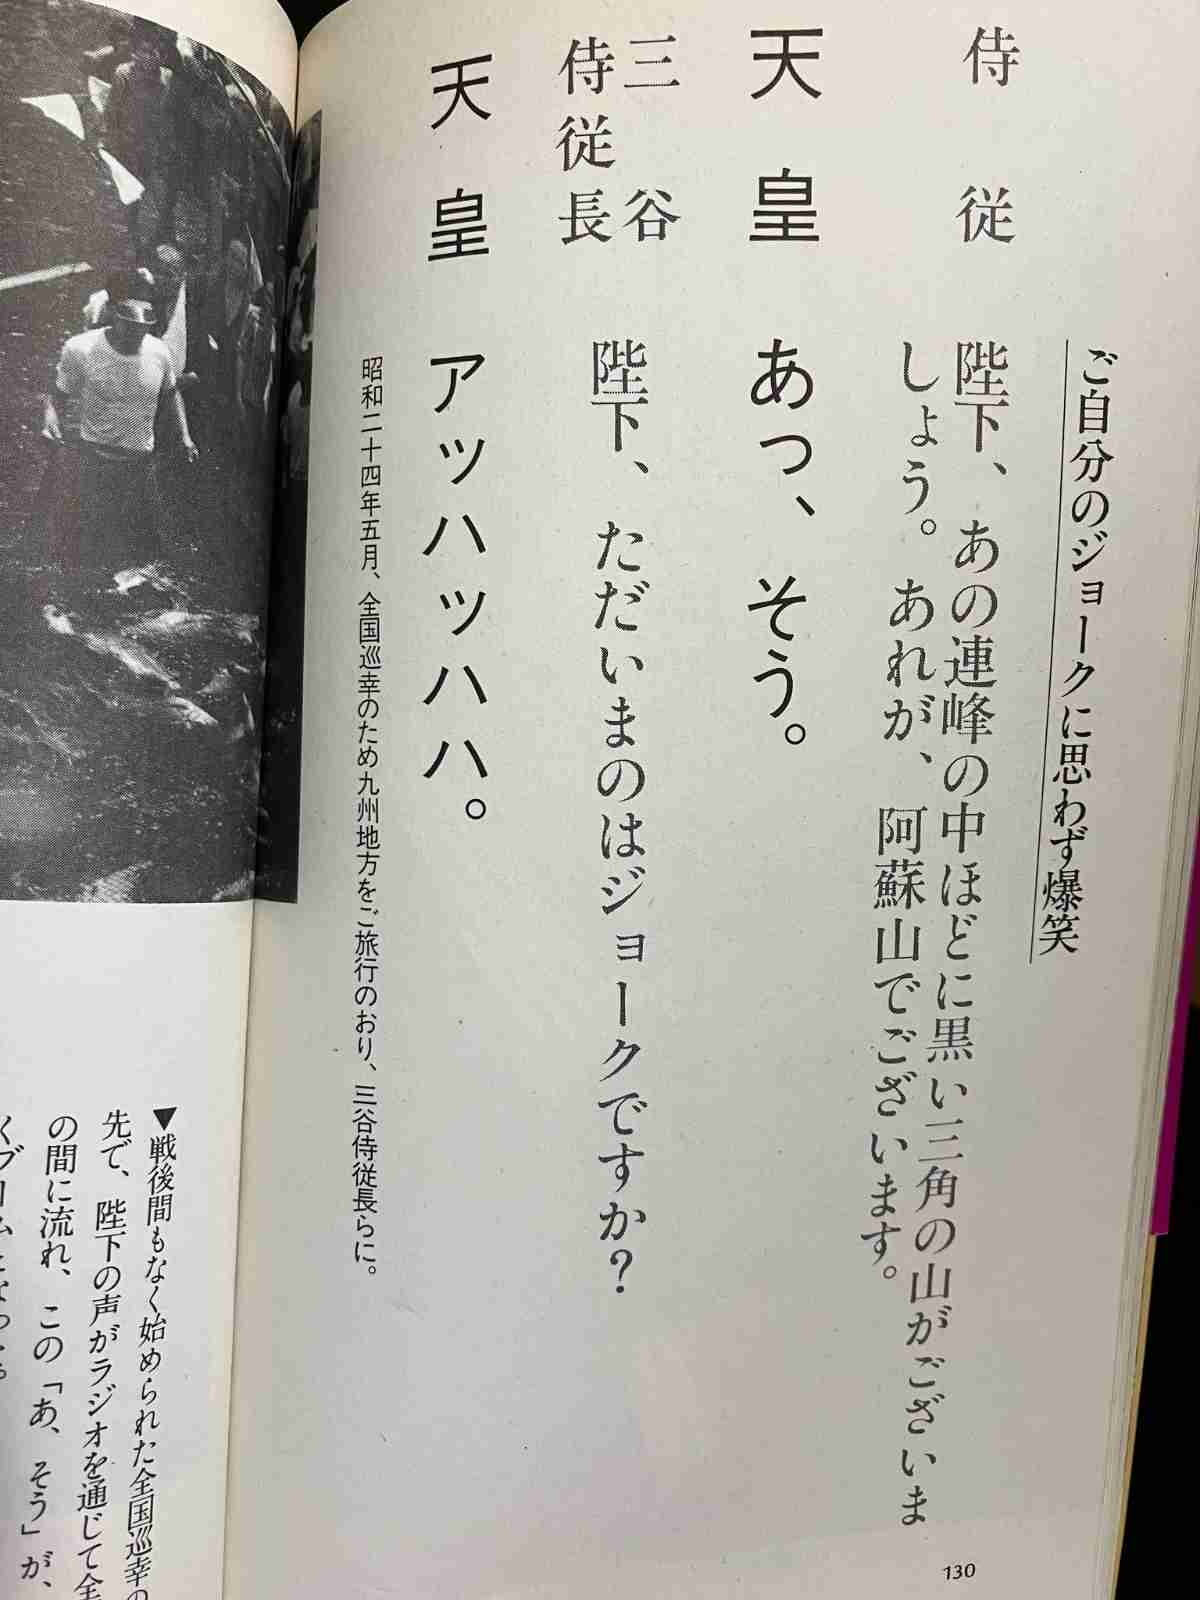 ご自分のジョークに思わず爆笑
侍従
陛下、あの連峰の中ほどに黒い三角の山がございま
しょう。あれが、阿蘇山でございます。
天皇
あっ、そう。
三谷
侍従長
陛下、ただいまのはジョークですか?
天皇
アッハッハハ。
昭和二十四年五月、全国巡幸のため九州地方をご旅行のおり、三谷侍従長らに。
130
▼戦後間もなく始められた全国巡幸の
先で、陛下の声がラジオを通じて全
の間に流れ、この「あ、そう」が、